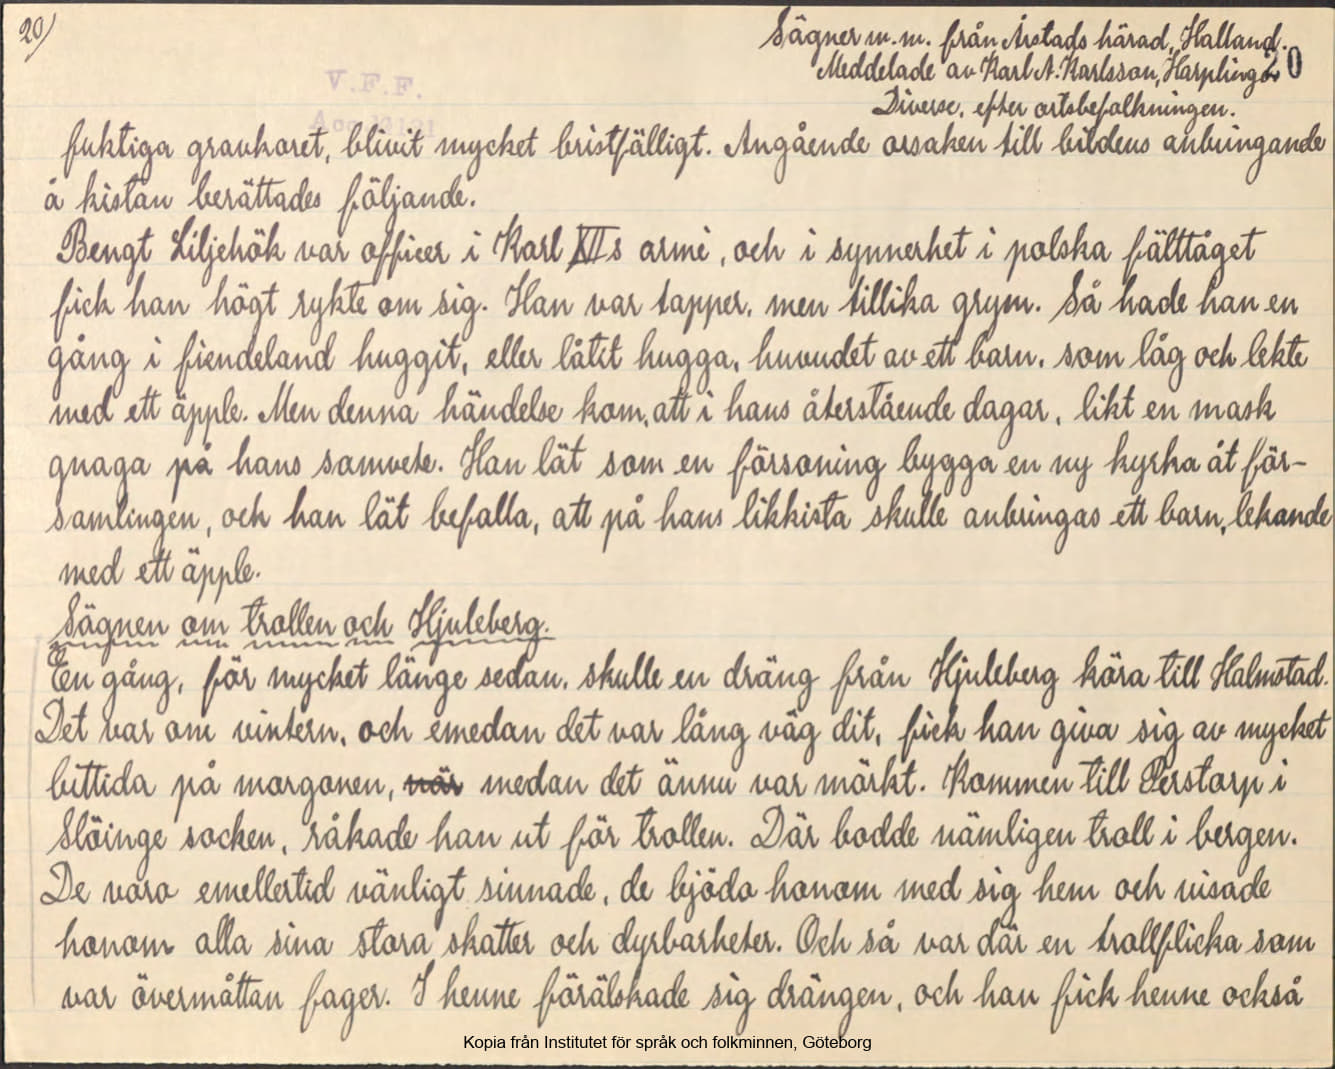 20/
Sägner m.m. från Årstads härad, Halland.
Meddelade av Karl A. Karlsson, Harplinge.
20
Diverse, efter ortsbefolkningen.
V.F.F.
fuktiga gravkoret, blivit mycket bristfälligt. Angående orsaken till bildens anbringande
å kistan berättades följande.
Bengt Liljehök var officer i Karl XIIs armé, och i synnerhet i polska fälttåget
fick han högt rykte om sig. Han var tapper, men tillika grym. Så hade han en
gång i fiendeland huggit, eller låtit hugga, huvudet av ett barn, som låg och lekte
med ett äpple. Men denna händelse kom, att i hans återstående dagar, likt en mask
gnaga på hans samvete. Han lät som en försoning bygga en ny kyrka åt för-
samlingen, och han lät befalla, att på hans likkista skulle anbringas ett barn, lekande
med ett äpple.
Sägnen om trollen och Hjuleberg.
En gång, för mycket länge sedan, skulle en dräng från Hjuleberg köra till Halmstad.
Det var om vintern, och emedan det var lång väg dit, fick han giva sig av mycket
bittida på morgonen, när medan det ännu var mörkt. Kommen till Perstorp i
Slöinge socken, råkade han ut för trollen. Där bodde nämligen troll i bergen.
De voro emellertid vänligt sinnade, de bjödo honom med sig hem och visade
honom alla sina stora skatter och dyrbarheter. Och så var där en trollflicka som
var övermåttan fager. I henne förälskade sig drängen, och han fick henne också
Kopia från Institutet för språk och folkminnen, Göteborg